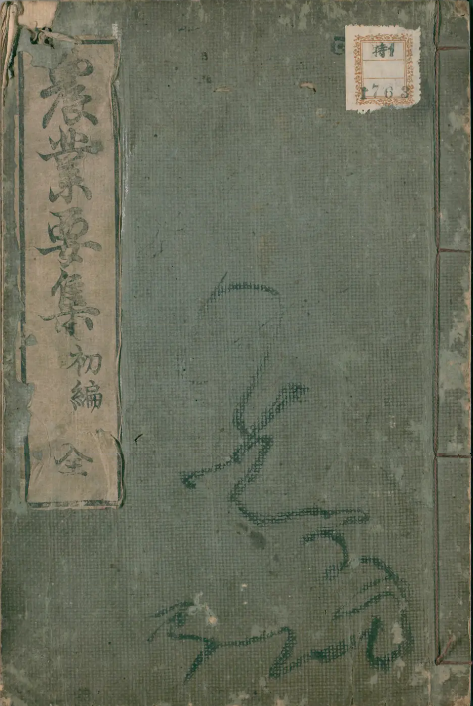 農業要集初編 全
特1
1763